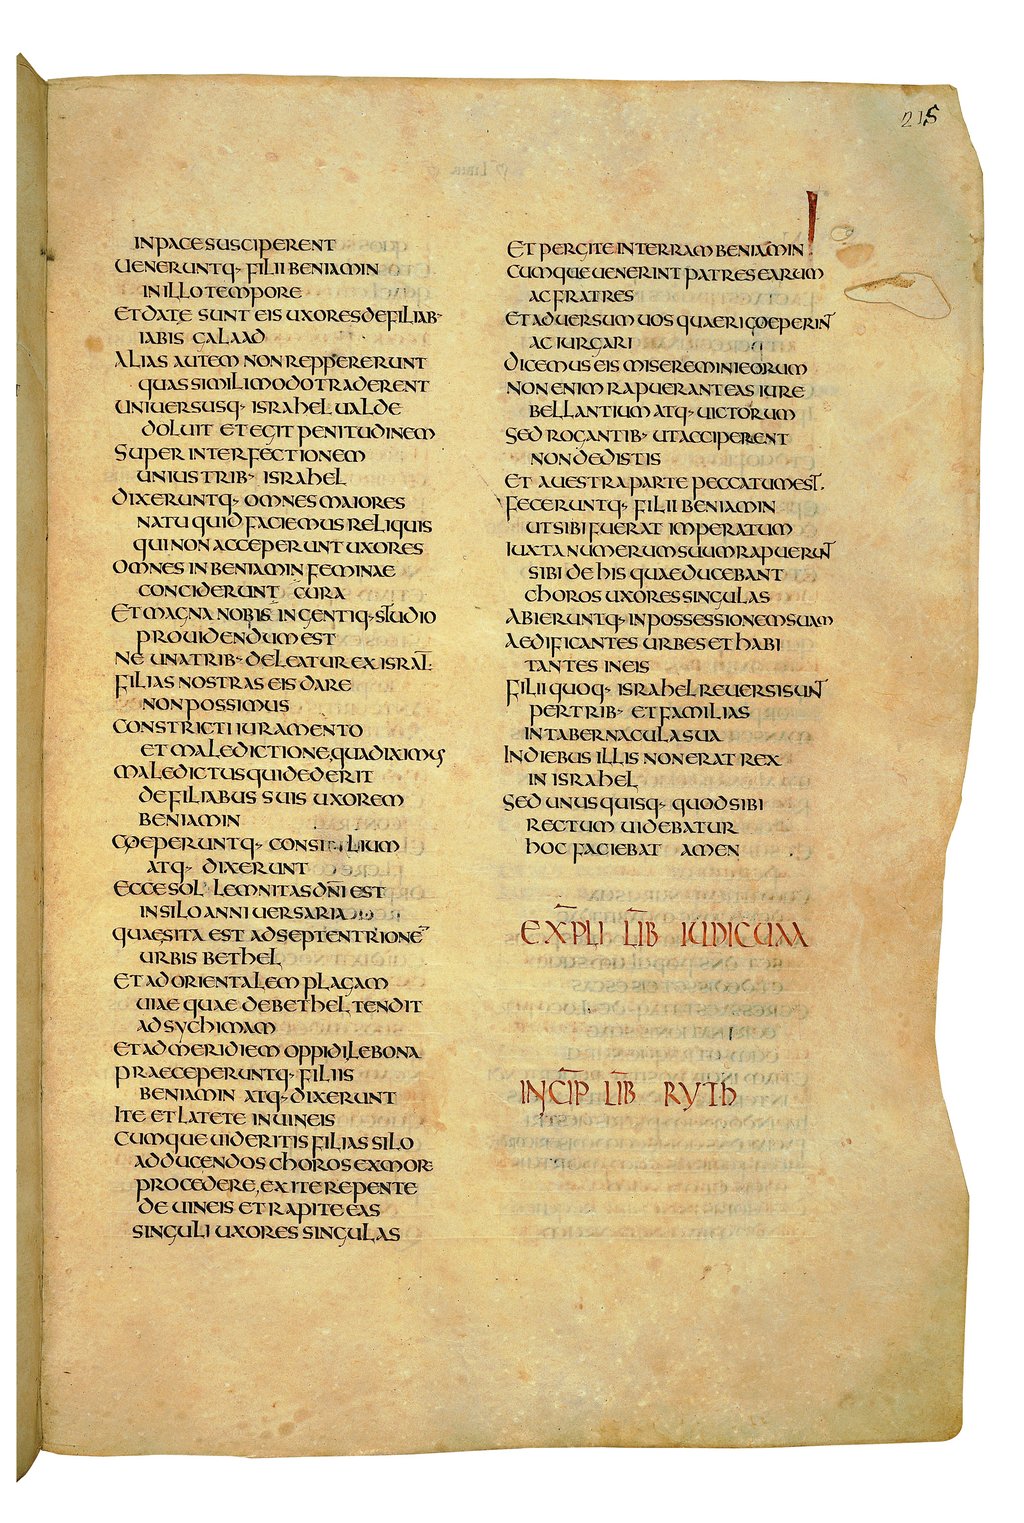 215
IN PACE SUSCIPERENT
UENERUNTQ· FILII BENIAMIN
IN ILLO TEMPORE
ET DATE SUNT EIS UXORES DE FILIAB·
IABIS GALAAD
ALIAS AUTEM NON REPPERERUNT
QUAS SIMILI MODO TRADERENT
UNIUERSUSQ· ISRAHEL UALDE
DOLUIT ET EGIT PENITUDINEM
SUPER INTERFECTIONEM
UNIUS TRIB· ISRAHEL
DIXERUNTQ· OMNES MAIORES
NATU QUID FACIEMUS RELIQUIS
QUI NON ACCEPERUNT UXORES
OMNES IN BENIAMIN FEMINAE
CONCIDERUNT CURA
ET MAGNA NOBIS INGENTIQ· STUDIO
PROUIDENDUM EST
NE UNA TRIB· DELEATUR EX ISRAL̄·
FILIAS NOSTRAS EIS DARE
NON POSSIMUS
CONSTRICTI IURAMENTO
ET MALEDICTIONE, QUA DIXIMUS
MALEDICTUS QUI DEDERIT
DE FILIABUS SUIS UXOREM
BENIAMIN
COEPERUNTQ· CONSILIUM
ATQ· DIXERUNT
ECCE SOLLEMNITAS DN̄I EST
IN SILO ANNIUERSARIA
QUAE SITA EST AD SEPTENTRIONĒ
URBIS BETHEL
ET AD ORIENTALEM PLAGAM
UIAE QUAE DE BETHEL TENDIT
AD SYCHIMAM
ET AD MERIDIEM OPPIDI LEBONA
PRAECEPERUNTQ· FILIIS
BENIAMIN ATQ· DIXERUNT
ITE ET LATETE IN UINEIS
CUMQUE UIDERITIS FILIAS SILO
AD DUCENDOS CHOROS EX MOR·
PROCEDERE, EXITE REPENTE
DE UINEIS ET RAPITE EAS
SINGULI UXORES SINGULAS
ET PERGITE IN TERRAM BENIAMIN
CUMQUE UENERINT PATRES EARUM
AC FRATRES
ET ADUERSUM UOS QUAERI COEPERIN̄T
AC IURGARI
DICEMUS EIS MISEREMINI EORUM
NON ENIM RAPUERANT EAS IURE
BELLANTIUM ATQ· UICTORUM
SED ROGANTIB· UT ACCIPERENT
NON DEDISTIS
ET A UESTRA PARTE PECCATUM EST.
FECERUNTQ· FILII BENIAMIN
UT SIBI FUERAT IMPERATUM
IUXTA NUMERUM SUUM RAPUERUNT
SIBI DE HIS QUAE DUCEBANT
CHOROS UXORES SINGULAS
ABIERUNTQ· IN POSSESSIONEM SUAM
AEDIFICANTES URBES ET HABI
TANTES IN EIS
FILII QUOQ· ISRAHEL REUERSI SUNT
PER TRIB· ET FAMILIAS
IN TABERNACULA SUA
IN DIEBUS ILLIS NON ERAT REX
IN ISRAHEL
SED UNUSQUISQ· QUOD SIBI
RECTUM UIDEBATUR
HOC FACIEBAT AMEN
EXPLI LIB̄ IUDICUM
INCIP LIB̄ RUTH